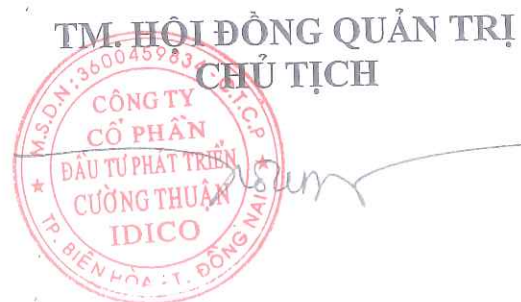 TM. HỘI ĐỒNG QUẢN TRỊ
CHỦ TỊCH
M.S.D.N: 3600459834 - C.T.C.P
CÔNG TY
CỔ PHẦN
ĐẦU TƯ PHÁT TRIỂN
CƯỜNG THUẬN
IDICO
TP. BIÊN HÒA - T. ĐỒNG NAI